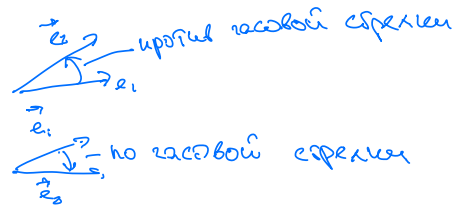 e₂ против часовой стрелки
e₁
e₁
по часовой стрелки
e₂